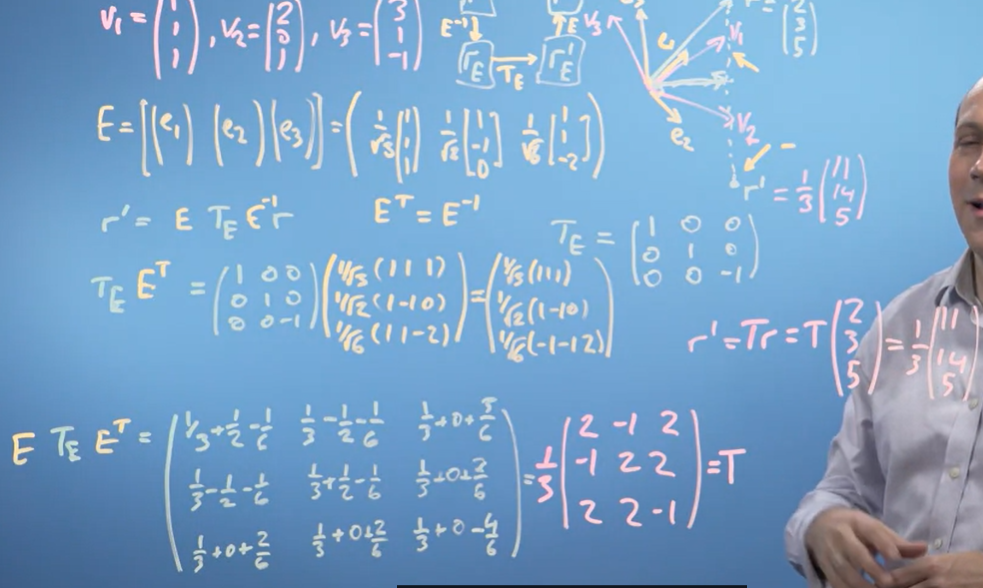 v₁ = (1 1 1), v₂ = (2 0 1), v₃ = (3 1 -1)
E⁻¹ E
r_E T_E r'_E
v₃ e₁ v₁ (2 3 5)
e₂ v₂
E = [(e₁) (e₂) (e₃)] = (1/√3 [1 1 1] 1/√2 [1 -1 0] 1/√6 [1 1 -2])
r' = 1/3 (11 14 5)
r' = E T_E E⁻¹ r E^T = E⁻¹
T_E = (1 0 0
0 1 0
0 0 -1)
T_E E^T = (1 0 0 0 1 0 0 0 -1) (1/√3 (1 1 1) 1/√2 (1 -1 0) 1/√6 (1 1 -2)) = (1/√3 (1 1 1) 1/√2 (1 -1 0) 1/√6 (-1 -1 2))
r' = Tr = T (2 3 5) = 1/3 (11 14 5)
E T_E E^T = (1/3 + 1/2 - 1/6 1/3 - 1/2 - 1/6 1/3 + 0 +
1/3 - 1/2 - 1/6 1/3 + 1/2 - 1/6 1/3 + 0 + 2/6
1/3 + 0 + 2/6 1/3 + 0 + 2/6 1/3 + 0 - 4/6) = 1/3 (2 -1 2 -1 2 2 2 2 -1) = T